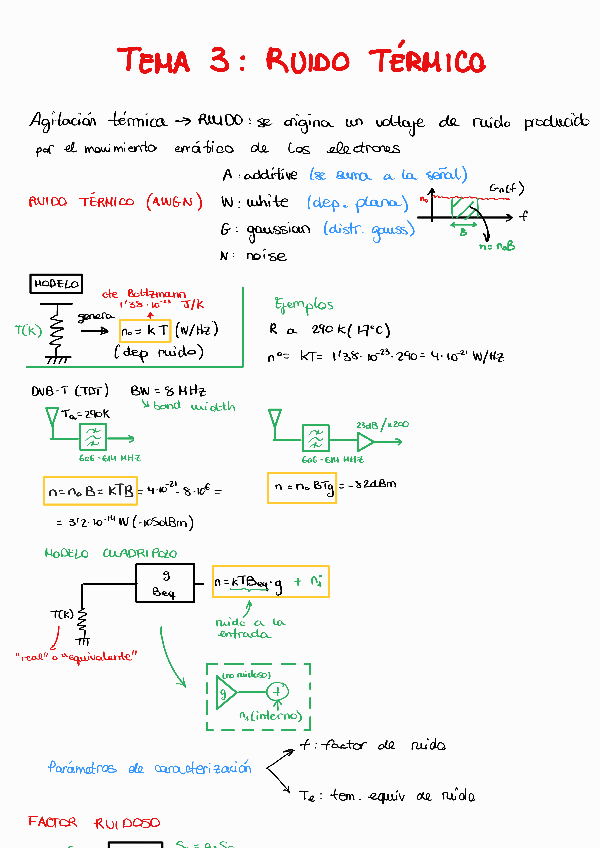 TEMA 3: RUIDO TÉRMICO
Agitación térmica → RUIDO: se origina un voltaje de ruido producido
por el movimiento errático de los electrones
RUIDO TÉRMICO (AWGN)
A: additive (se suma a la señal)
W: white (dep. plana)
G: gaussian (distr. gauss)
N: noise
n₀
Gn(f)
f
B
n = n₀B
MODELO
T(k)
genera
cte Boltzmann
1'38·10⁻²³ J/K
n₀ = k T (W/Hz)
(dep ruido)
Ejemplos
R a 290 K (17ºC)
nº = KT = 1'38·10⁻²³·290 = 4·10⁻²¹ W/Hz
DVB-T (TDT) BW = 8 MHz
↳ band width
Ta = 290K
606-614 MHz
n = n₀ B = KTB = 4·10⁻²¹·8·10⁶ =
= 3'2·10⁻¹⁴ W (-105dBm)
23dB/x200
606-614 MHz
n = n₀ BTg = -82dBm
MODELO CUADRIPOLO
g
Beq
n = KTBeq·g + ni
T(K)
ruido a la
entrada
"real" o "equivalente"
(no ruidoso)
g
+
ni (interno)
Parámetros de caracterización
f: factor de ruido
Te: tem. equiv de ruido
FACTOR RUIDOSO